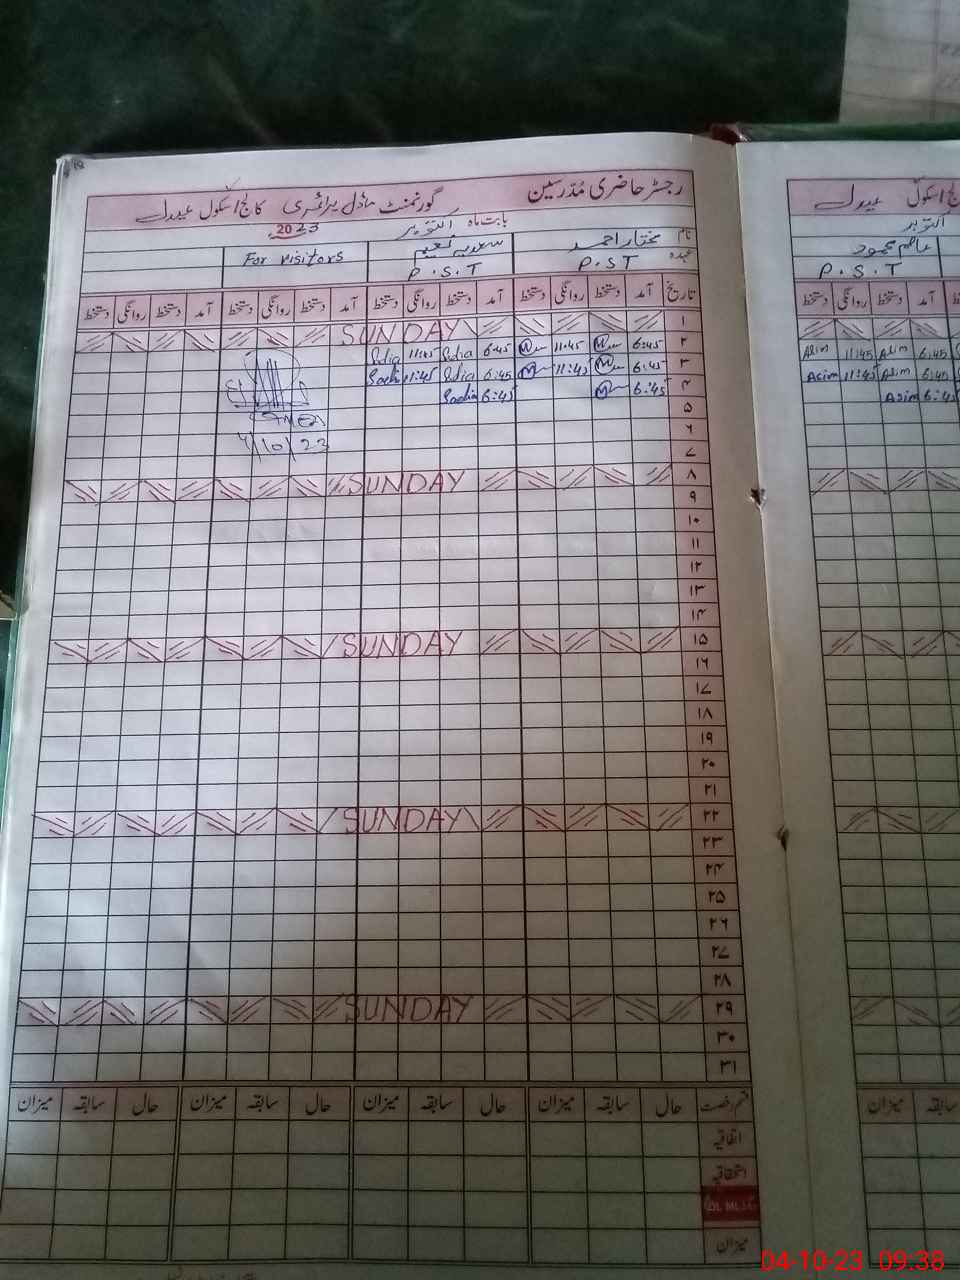 رجسٹر حاضری مُدرسین گورنمنٹ ماڈل پرائمری کالج اسکول عیدل
بابت ماہ اکتوبر 2023
نام مختار احمد سعدیہ نعیم For Visitors
عہدہ P.S.T P.S.T
تاریخ آمد دستخط روانگی دستخط آمد دستخط روانگی دستخط آمد دستخط روانگی دستخط آمد دستخط روانگی دستخط
۱ SUNDAY
۲ 6:45 11:45 6:45 Sadia 11:45 Sadia
۳ 6:45 11:45 6:45 Sadia 11:45 Sadia
۴ 6:45 6:45 Sadia
۵
۶
۷ 4/10/23
۸ SUNDAY
۹
۱۰
۱۱
۱۲
۱۳
۱۴
۱۵ SUNDAY
۱۶
۱۷
۱۸
۱۹
۲۰
۲۱
۲۲ SUNDAY
۲۳
۲۴
۲۵
۲۶
۲۷
۲۸
۲۹ SUNDAY
۳۰
۳۱
قسم رخصت حال سابقہ میزان حال سابقہ میزان حال سابقہ میزان حال سابقہ میزان
اتفاقیہ
استحقاقیہ
میزان
کالج اسکول عیدل
اکتوبر
عاصم محمود
P.S.T
آمد دستخط روانگی دستخط
6:45 Asim 11:45 Asim
6:45 Asim 11:45 Asim
6:45 Asim
سابقہ میزان
04-10-23 09:38